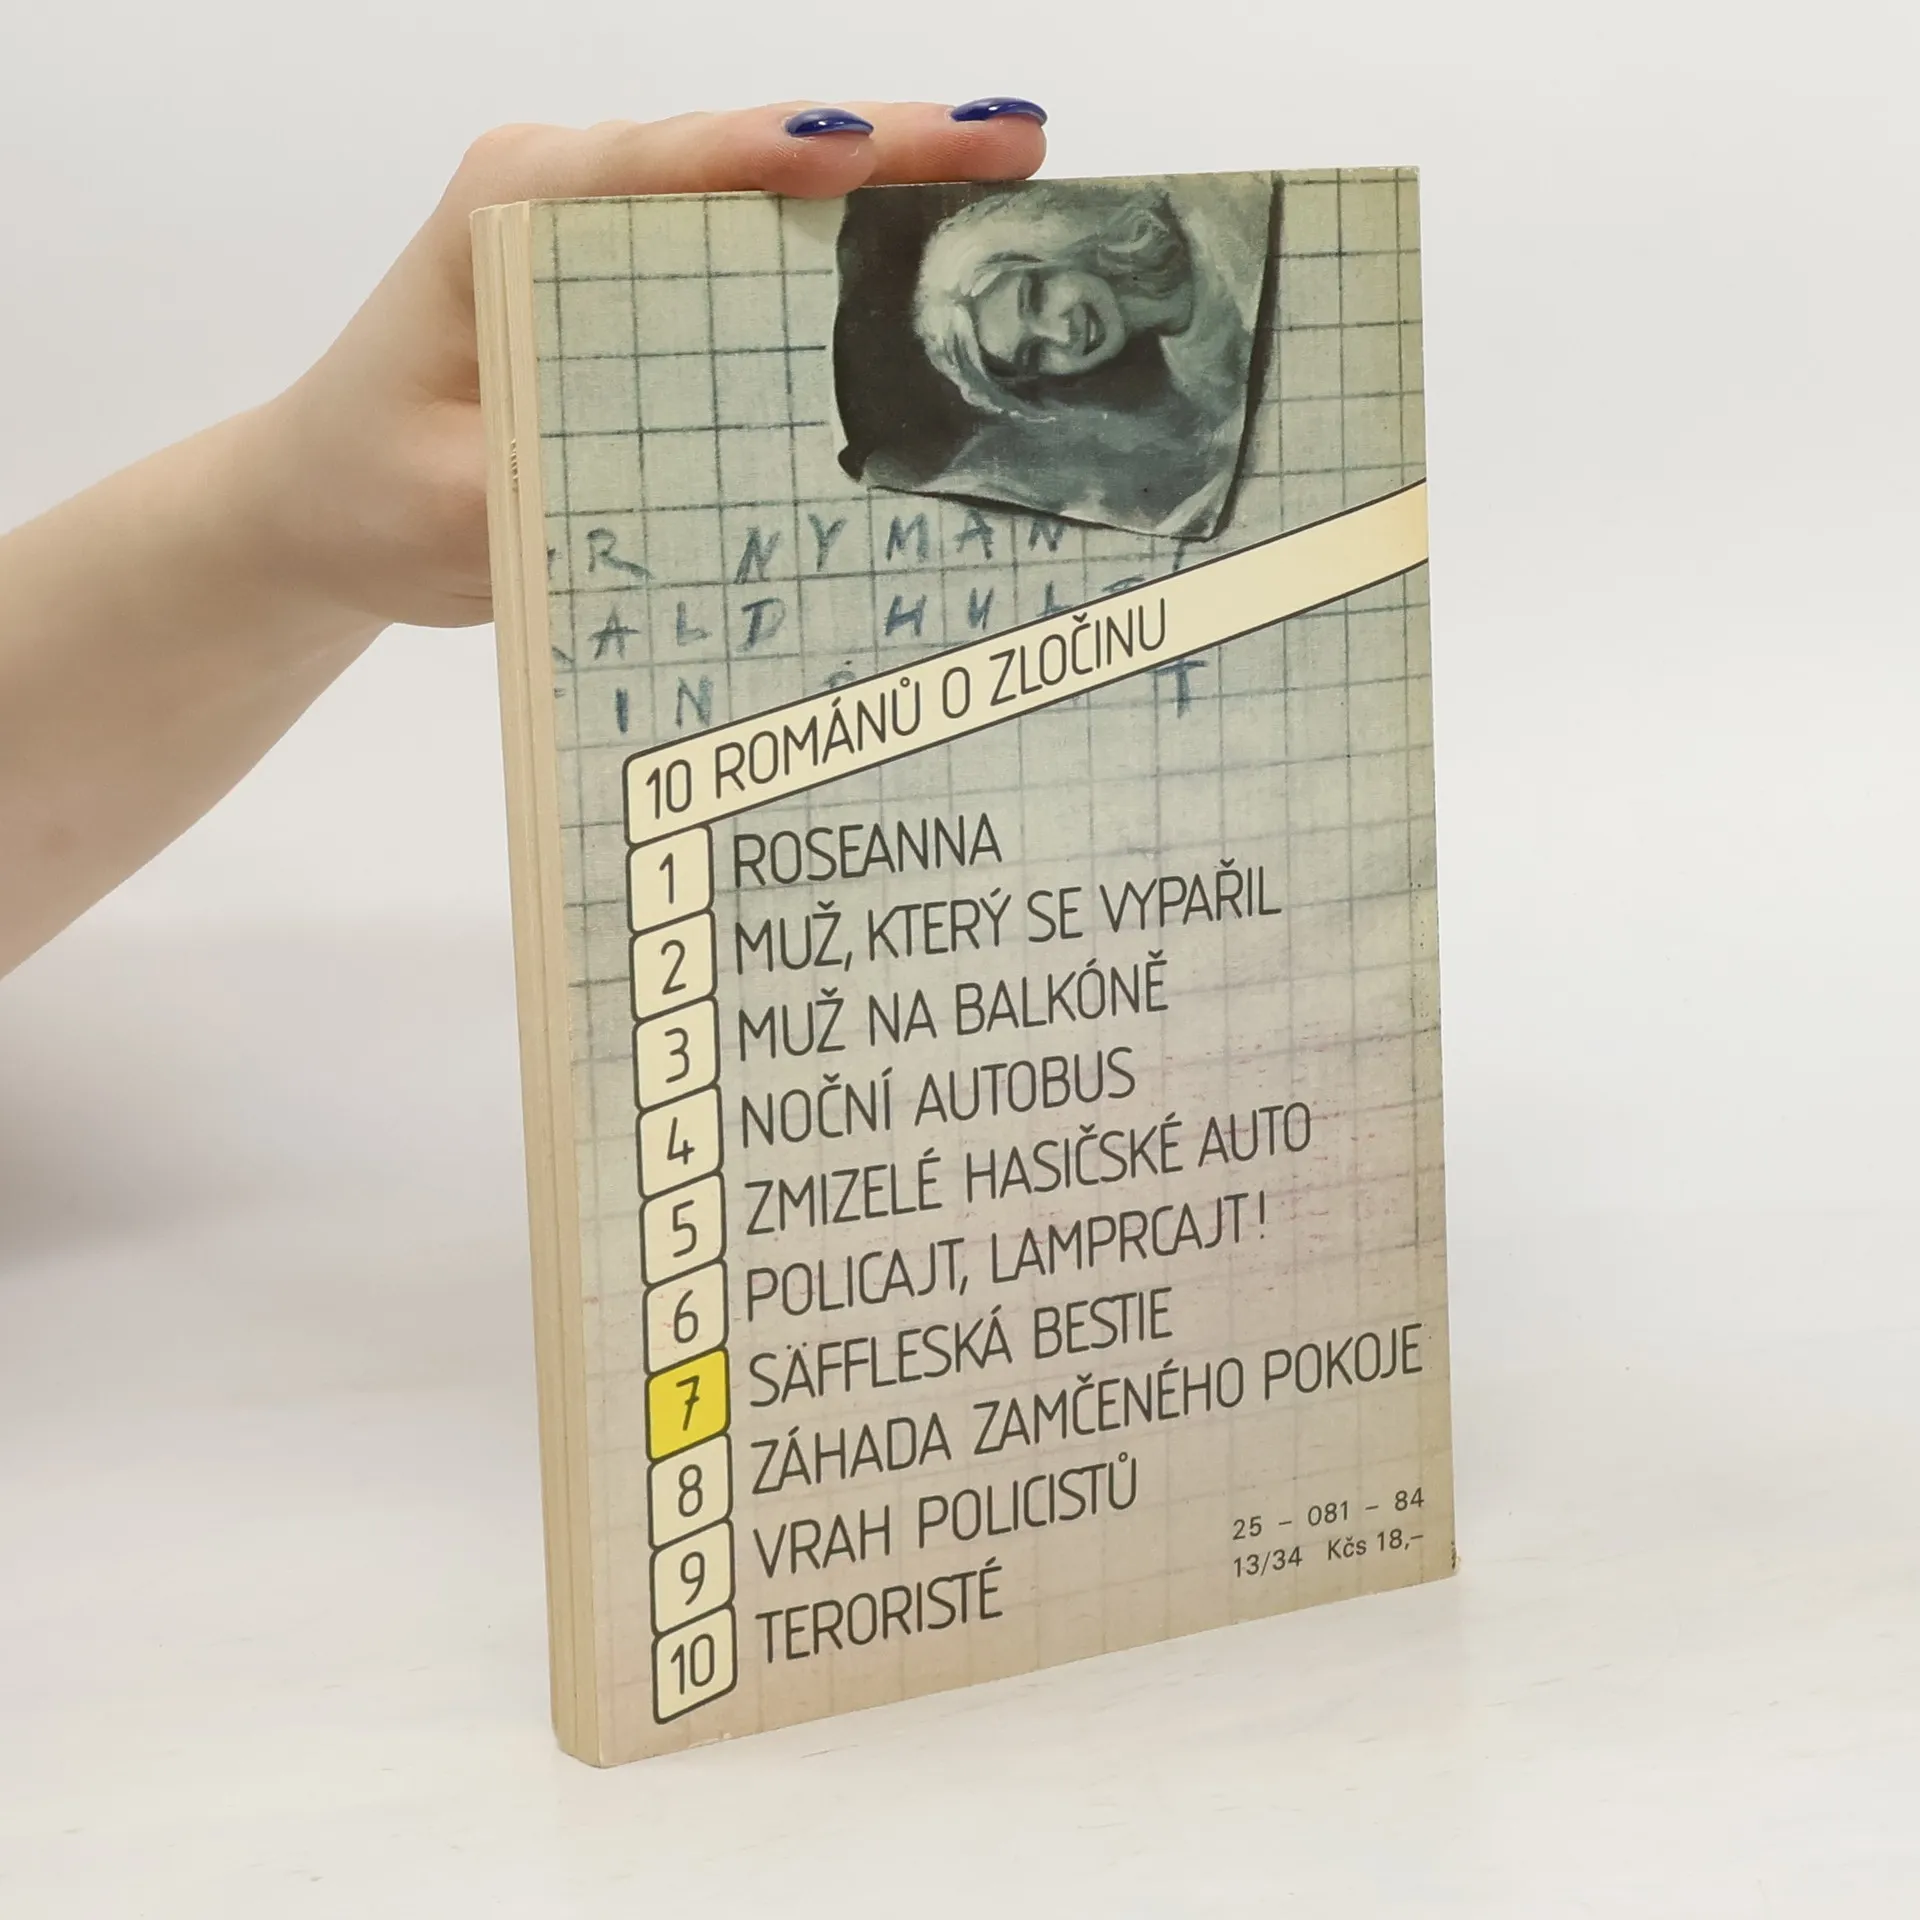 R NYMAN
ALD HUL
IN T
10 ROMÁNŮ O ZLOČINU
1 ROSEANNA
2 MUŽ, KTERÝ SE VYPAŘIL
3 MUŽ NA BALKÓNĚ
4 NOČNÍ AUTOBUS
5 ZMIZELÉ HASIČSKÉ AUTO
6 POLICAJT, LAMPRCAJT!
7 SÄFFLESKÁ BESTIE
8 ZÁHADA ZAMČENÉHO POKOJE
9 VRAH POLICISTŮ
10 TERORISTÉ
25 – 081 – 84
13/34 Kčs 18,–